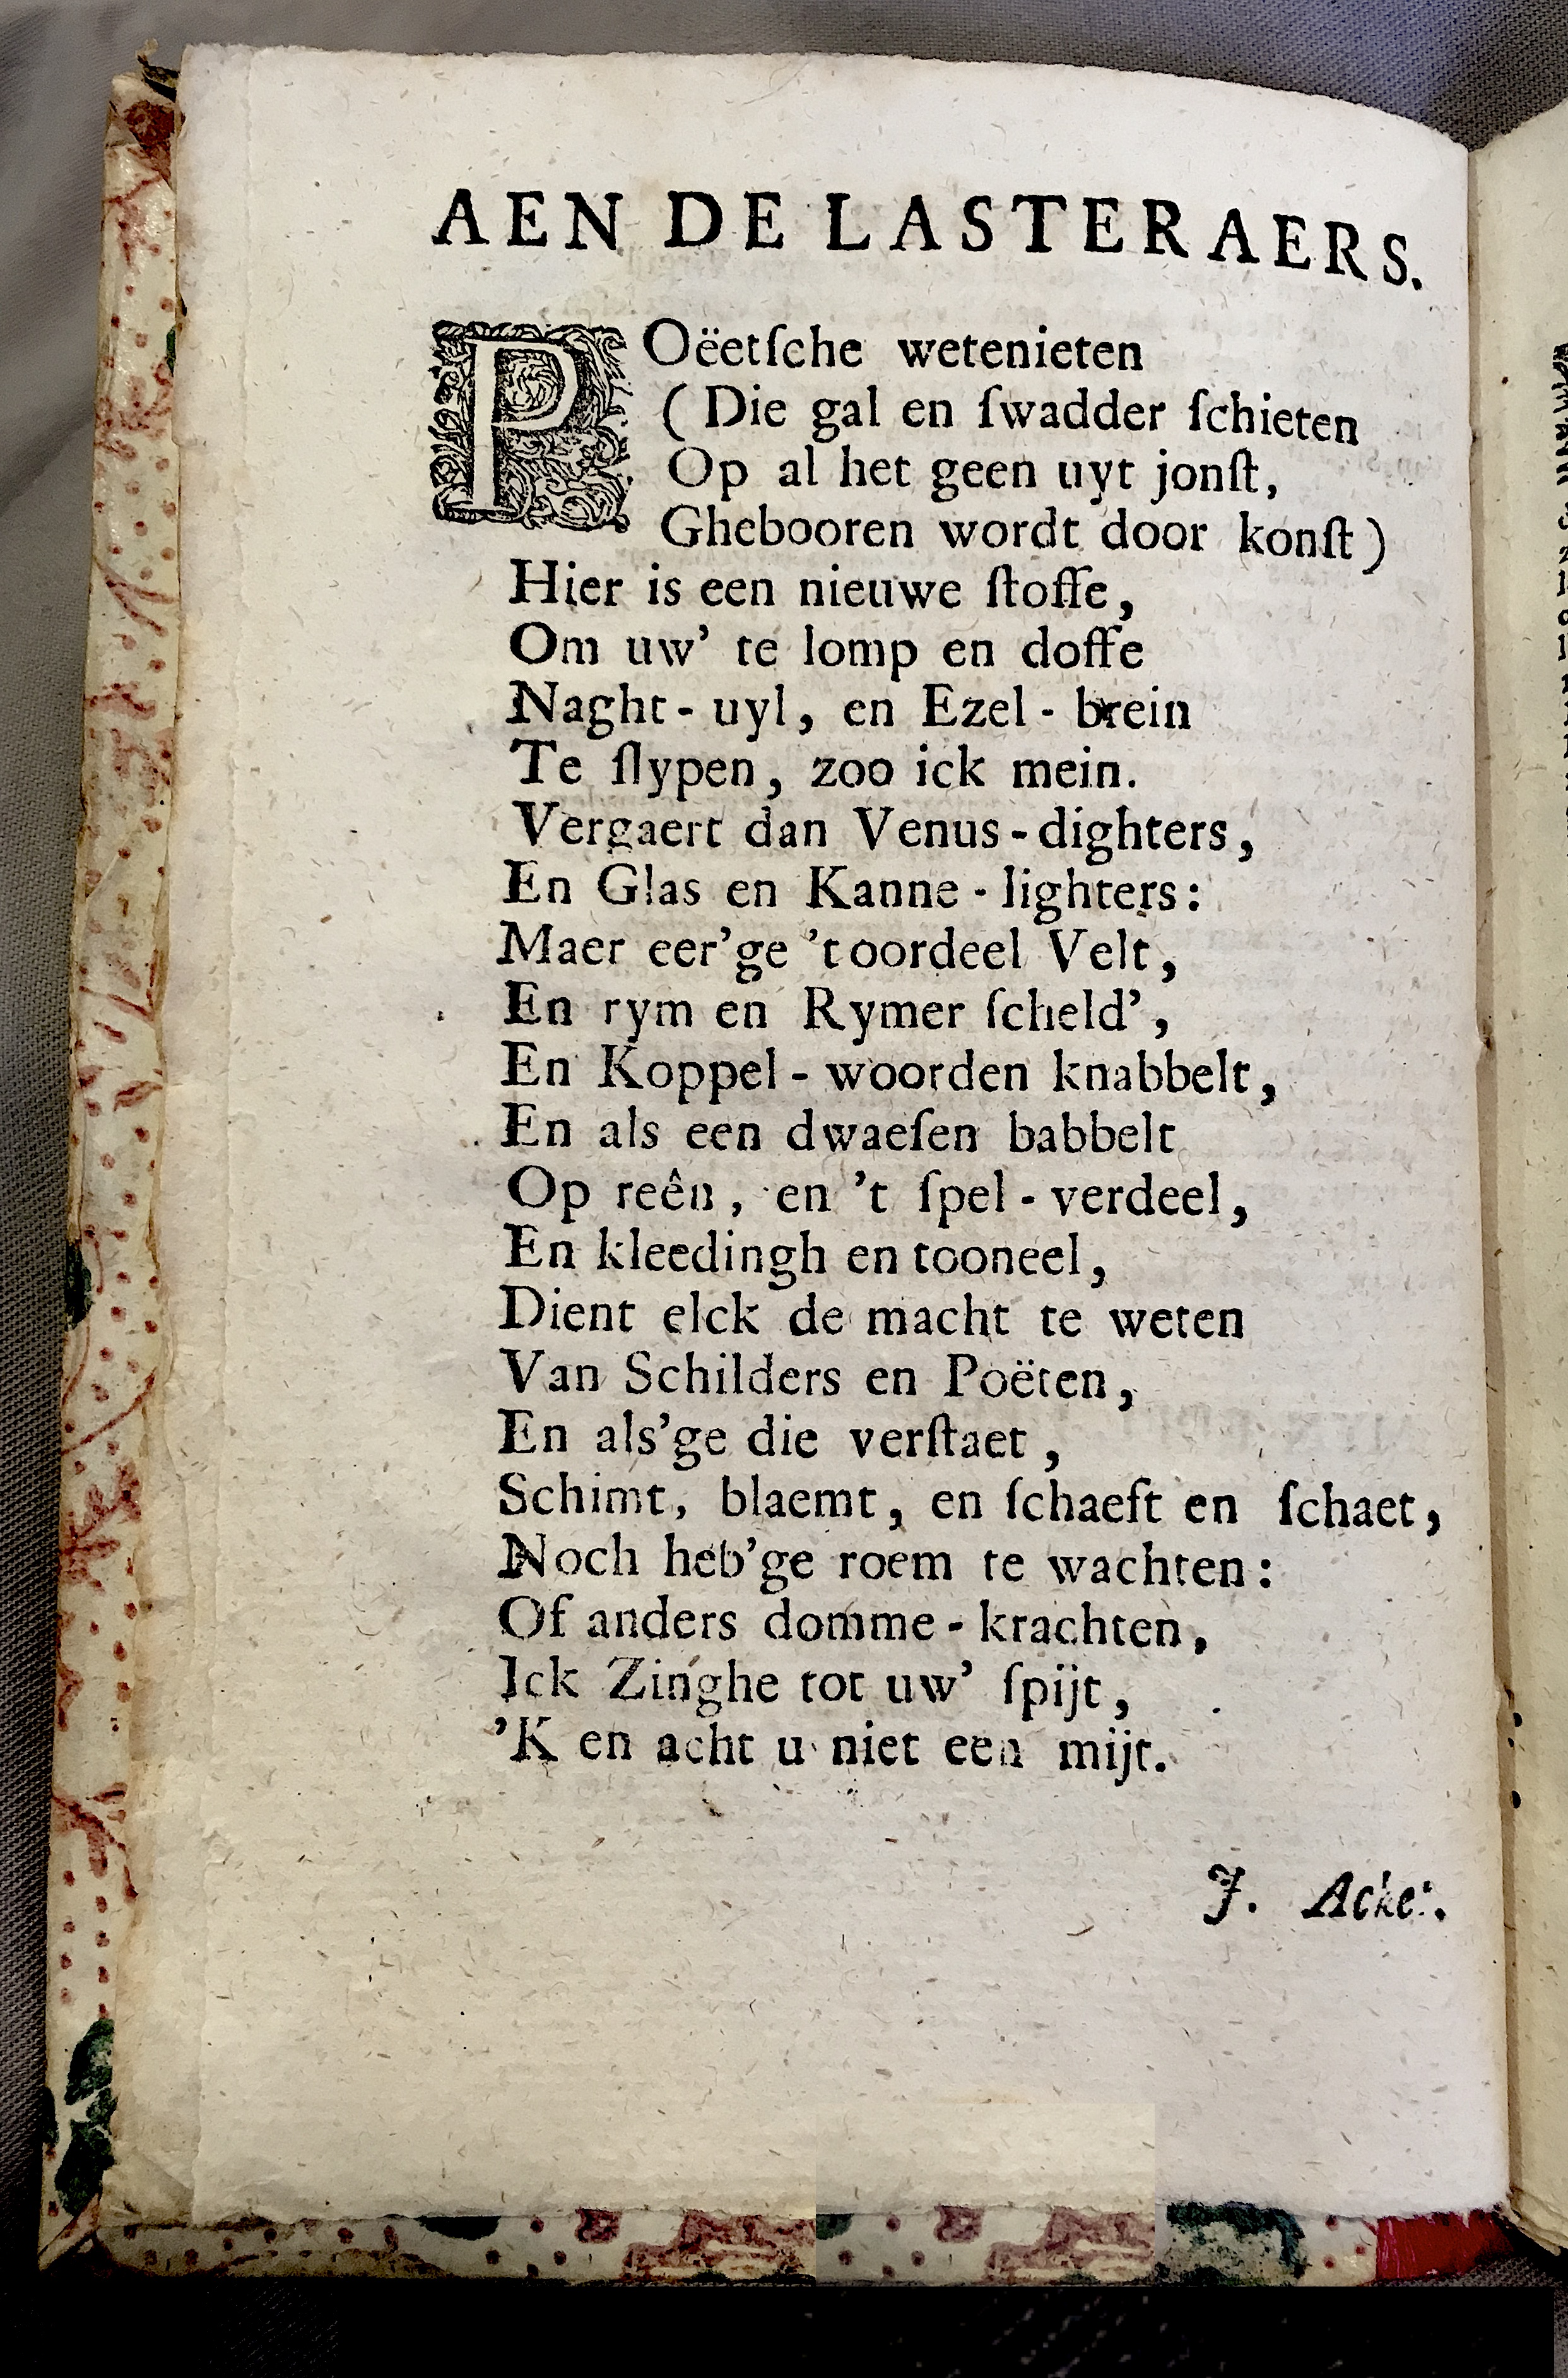 AEN DE LASTERAERS.
POëetſche wetenieten
( Die gal en ſwadder ſchieten
Op al het geen uyt jonſt,
Ghebooren wordt door konſt )
Hier is een nieuwe ſtoffe,
Om uw' te lomp en doffe
Naght - uyl, en Ezel - brein
Te ſlypen, zoo ick mein.
Vergaert dan Venus - dighters,
En Glas en Kanne - lighters:
Maer eer'ge 't oordeel Velt,
En rym en Rymer ſcheld',
En Koppel - woorden knabbelt,
En als een dwaeſen babbelt
Op reên, en 't ſpel - verdeel,
En kleedingh en tooneel,
Dient elck de macht te weten
Van Schilders en Poëten,
En als'ge die verſtaet,
Schimt, blaemt, en ſchaeft en ſchaet,
Noch heb'ge roem te wachten:
Of anders domme - krachten,
Ick Zinghe tot uw' ſpijt,
'K en acht u niet een mijt.
J. Acker.